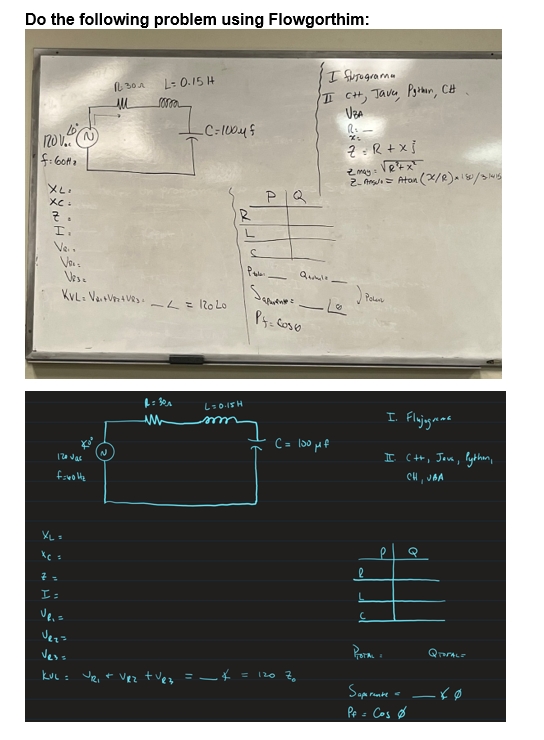 Do the following problem using Flowgorthim:
R 30Ω L= 0.15H
C=100μf
120 Vac ∠0°
f=60Hz
XL=
XC=
Z =
I =
VR1=
VR2=
VR3=
KVL= VR1+VR2+VR3= _∠ = 120∠0
I flujograma
II C++, Java, Python, C#
VBA
R= _
X=
Z = R + xj
Z mag = √R²+x²
Z Angulo = Atan (X/R) * 180/3.1415
P Q
R
L
C
Ptotal = __ Qtotal = __
Saparente = __ ∠θ
Polar
Pf = Cosθ
R= 30Ω
L=0.15H
C = 100 μf
∠0°
120 Vac
f=60Hz
I. Flujograma
II C++, Java, Python,
C#, VBA
XL =
XC =
Z =
I =
VR1=
VR2=
VR3=
KVL = VR1 + VR2 + VR3 = __ ∠ = 120
P Q
R
L
C
PTOTAL = QTOTAL=
Saparente = __ ∠ Ø
Pf = Cos Ø